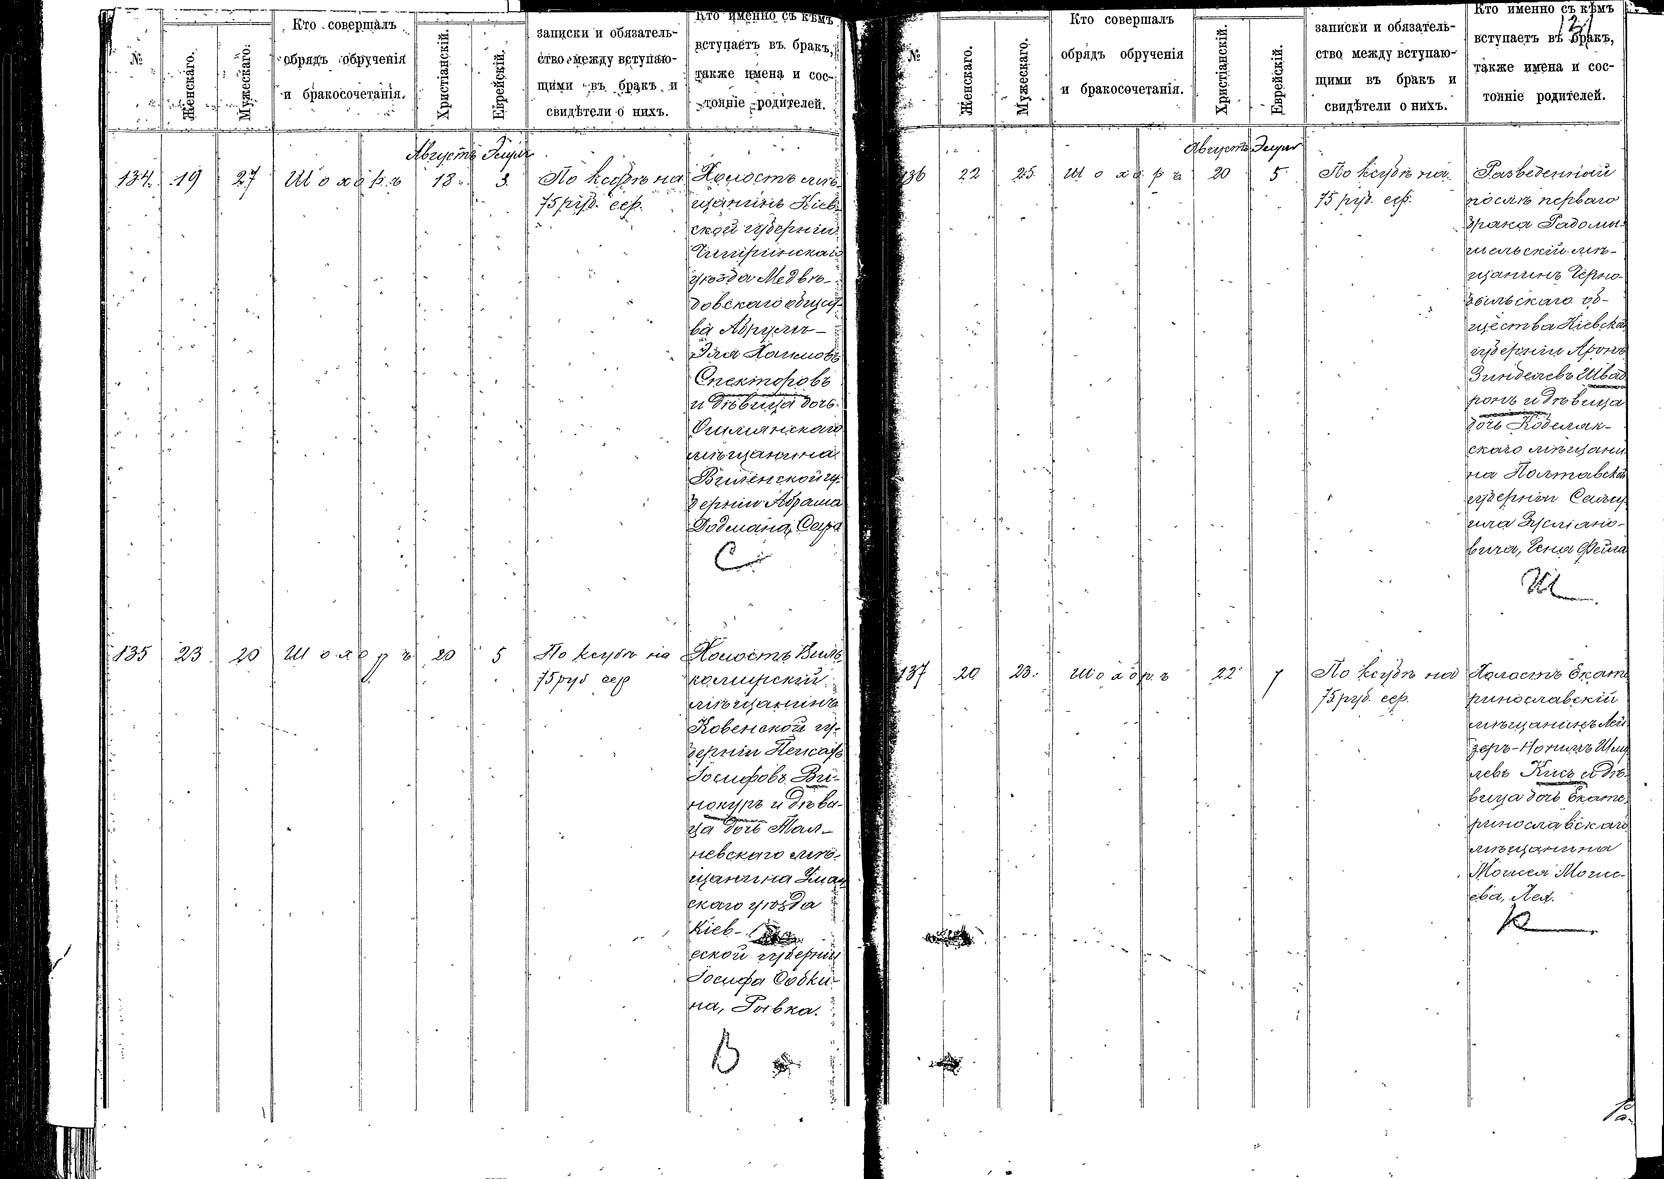 №
Женскаго.
Мужескаго.
Кто совершалъ
обрядъ обрученія
и бракосочетанія.
Христіанскій.
Еврейскій.
записки и обязатель-
ство между вступаю-
щими въ бракъ и
свидѣтели о нихъ.
Кто именно съ кѣмъ
вступаетъ въ бракъ,
также имена и сос-
тояніе родителей.
Августъ Элулъ
134 19 27 Шохоръ 18 3
По ксубѣ на
75 руб. сер.
Холостъ мѣ-
щанинъ Кіев-
ской губерніи
Чигиринскаго
уѣзда Медвѣ-
довскаго общест-
ва Абрумъ-
Эля Хаимовъ
Спекторовъ
и дѣвица дочь
Ошмянскаго
мѣщанина
Виленской гу-
берніи Абрама
Додмана, Сора
С
135 23 20 Шохоръ 20 5
По ксубѣ на
75 руб сер
Холостъ Виль-
комирскій
мѣщанинъ
Ковенской гу-
берніи Пейсахъ
Іосифовъ Ви-
нокуръ и дѣви-
ца дочь Тал-
невскаго мѣ-
щанина Уман-
скаго уѣзда
Кіев-
ской губерніи
Іосифа Собки-
на, Рывка.
В
№
Женскаго.
Мужескаго.
Кто совершалъ
обрядъ обрученія
и бракосочетанія.
Христіанскій.
Еврейскій.
записки и обязатель-
ство между вступаю-
щими въ бракъ и
свидѣтели о нихъ.
Кто именно съ кѣмъ
вступаетъ въ бракъ,
также имена и сос-
тояніе родителей.
121
Августъ Элулъ
136 22 25 Шохоръ 20 5
По ксубѣ на
75 руб. сер.
Разведенный
послѣ перваго
брака Радомы-
шельскій мѣ-
щанинъ Черно-
быльскаго об-
щества Кіевской
губерніи Аронъ
Зинделевъ Швад-
ронъ и дѣвица
дочь Кобеляк-
скаго мѣщани-
на Полтавской
губерніи Саму-
ила Зусліано-
вича, Гсня Фейга
Ш
137 20 23 Шохоръ 22 7
По ксубѣ на
75 руб. сер.
Холостъ Екате-
ринославскій
мѣщанинъ Лей-
зеръ-Нонимъ Шму-
левъ Кисъ и дѣ-
вица дочь Екате-
ринославскаго
мѣщанина
Моисея Моисе-
ева, Лея.
К